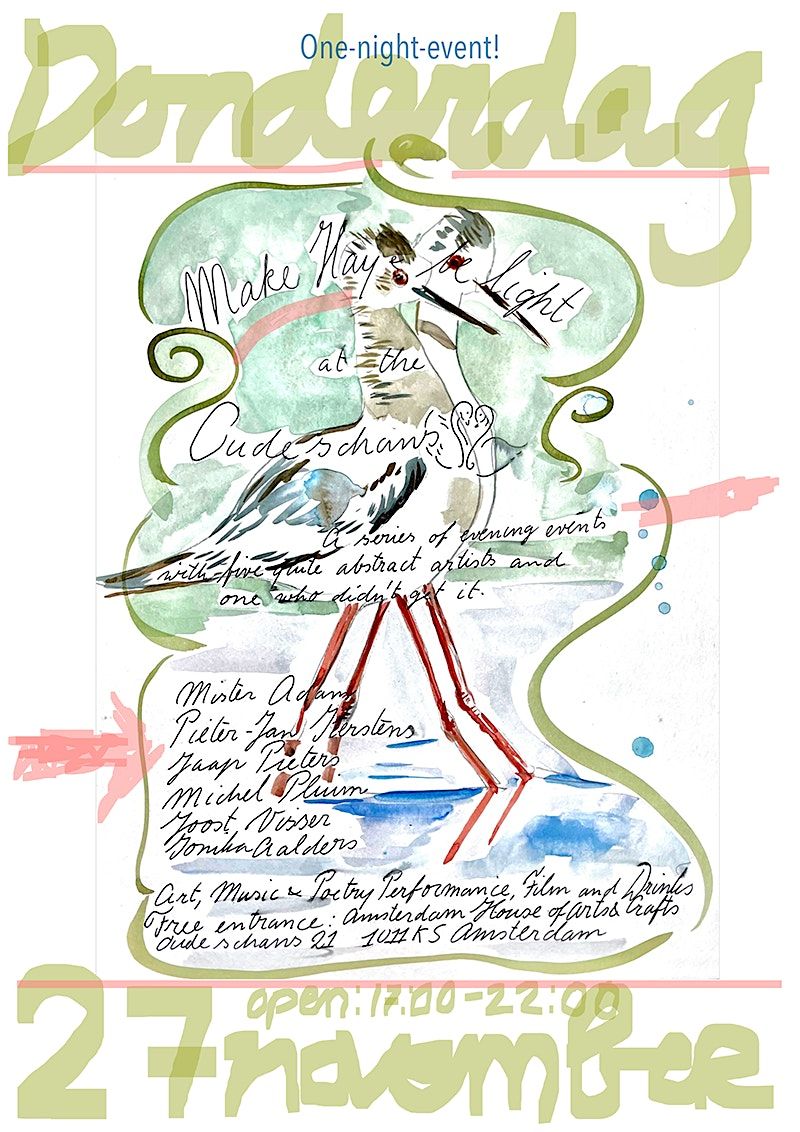 One-night-event!
Donderdag
Make Hay & be light
at the
Oudeschans
a series of evening events
with five quite abstract artists and
one who didn't get it.
Mister Adam
Pieter-Jan Kerstens
Jaap Pieters
Michel Pluim
Joost Visser
Tonika Aalders
Art, Music & Poetry Performance, Film and Drinks
Free entrance: Amsterdam House of Arts & Crafts
Oude schans 21 1011KS Amsterdam
open: 17:00 - 22:00
27 november